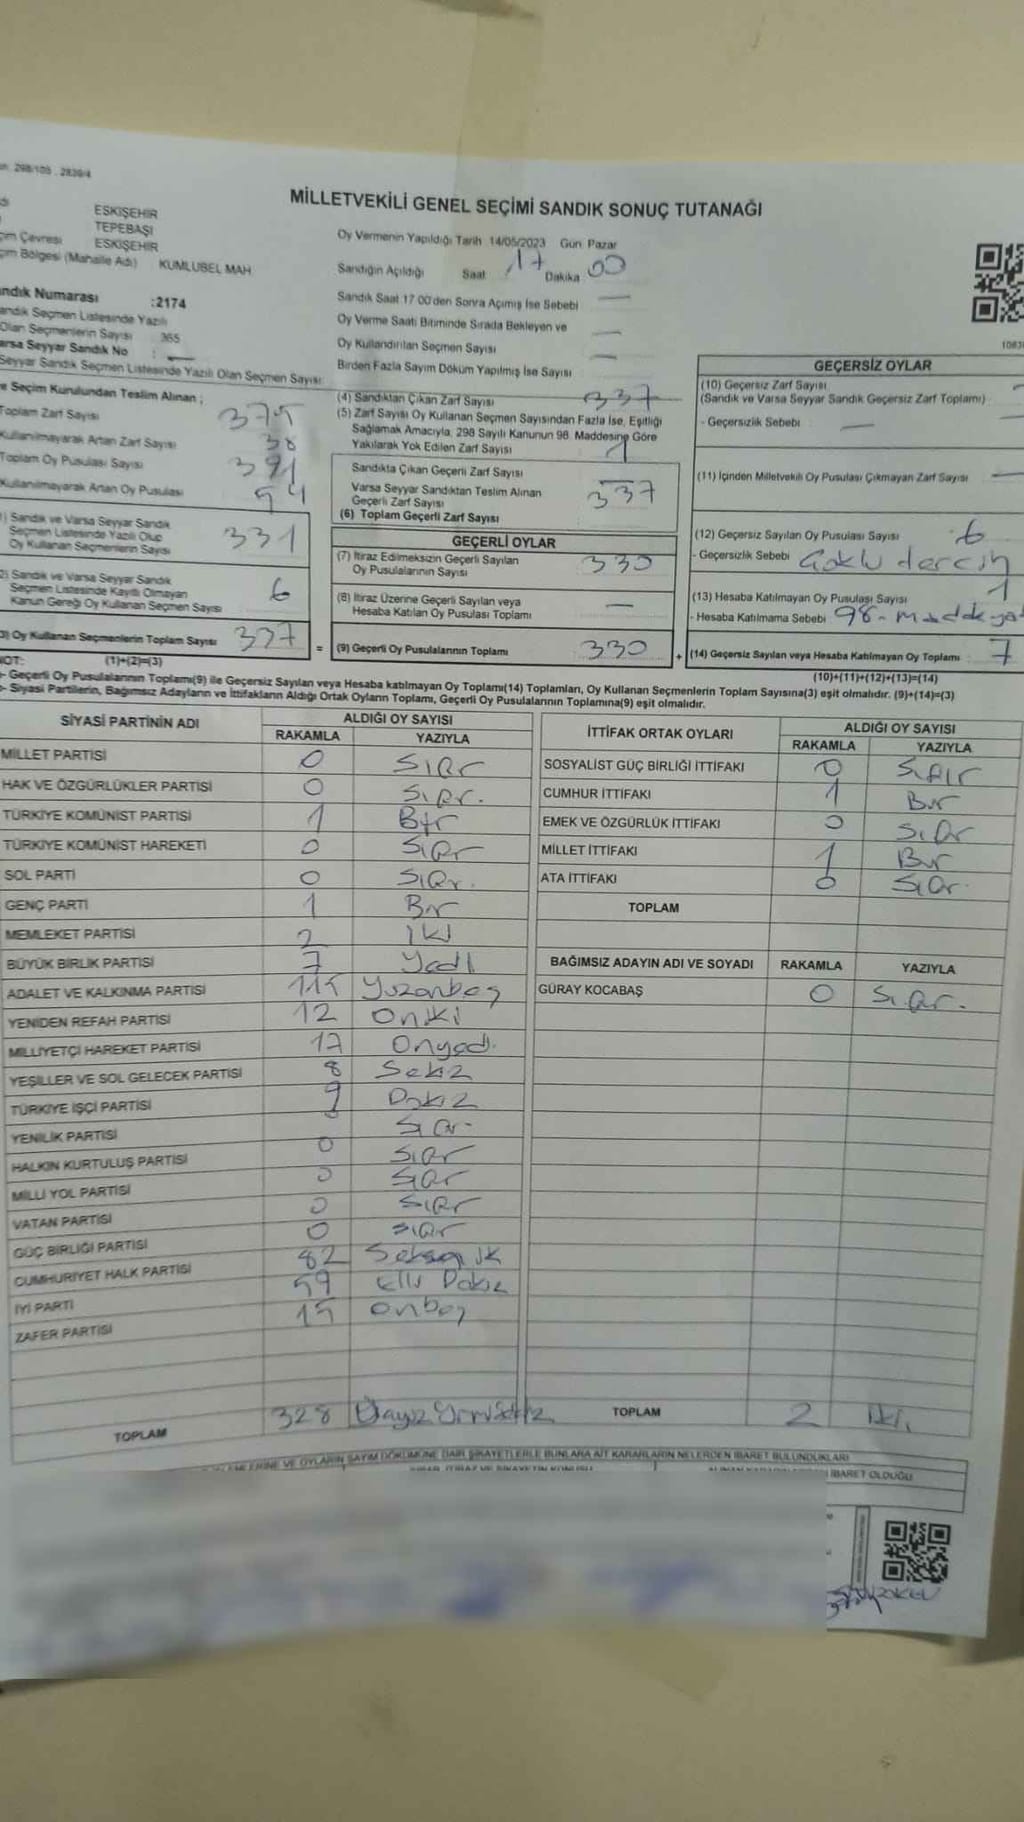 298/108 . 2839/4
MİLLETVEKİLİ GENEL SEÇİMİ SANDIK SONUÇ TUTANAĞI
ESKİŞEHİR
TEPEBAŞI
çim Çevresi ESKİŞEHİR
çim Bölgesi (Mahalle Adı) KUMLUBEL MAH.
Oy Vermenin Yapıldığı Tarih 14/05/2023 Gün Pazar
Sandığın Açıldığı Saat 17 Dakika 00
Sandık Saat 17 00'den Sonra Açımış İse Sebebi —
Oy Verme Saati Bitiminde Sırada Bekleyen ve
Oy Kullandırılan Seçmen Sayısı —
Birden Fazla Sayım Döküm Yapılmış İse Sayısı —
ndık Numarası :2174
andık Seçmen Listesinde Yazılı
Olan Seçmenlerin Sayısı 365
arsa Seyyar Sandık No : —
Seyyar Sandık Seçmen Listesinde Yazılı Olan Seçmen Sayısı:
e Seçim Kurulundan Teslim Alınan ;
Toplam Zarf Sayısı 375
Kullanılmayarak Artan Zarf Sayısı 38
Toplam Oy Pusulası Sayısı 391
Kullanılmayarak Artan Oy Pusulası 54
1) Sandık ve Varsa Seyyar Sandık
Seçmen Listesinde Yazılı Olup
Oy Kullanan Seçmenlerin Sayısı 331
2) Sandık ve Varsa Seyyar Sandık
Seçmen Listesinde Kayıtlı Olmayan
Kanun Gereği Oy Kullanan Seçmen Sayısı 6
3) Oy Kullanan Seçmenlerin Toplam Sayısı 337
(4) Sandıktan Çıkan Zarf Sayısı 337
(5) Zarf Sayısı Oy Kullanan Seçmen Sayısından Fazla İse, Eşitliği
Sağlamak Amacıyla, 298 Sayılı Kanunun 98. Maddesine Göre
Yakılarak Yok Edilen Zarf Sayısı 1
Sandıkta Çıkan Geçerli Zarf Sayısı
Varsa Seyyar Sandıktan Teslim Alınan
Geçerli Zarf Sayısı
(6) Toplam Geçerli Zarf Sayısı 337
GEÇERLİ OYLAR
(7) İtiraz Edilmeksizin Geçerli Sayılan
Oy Pusulalarının Sayısı 330
(8) İtiraz Üzerine Geçerli Sayılan veya
Hesaba Katılan Oy Pusulası Toplamı —
= (9) Geçerli Oy Pusulalarının Toplamı 330 +
GEÇERSİZ OYLAR
(10) Geçersiz Zarf Sayısı
(Sandık ve Varsa Seyyar Sandık Geçersiz Zarf Toplamı)
- Geçersizlik Sebebi —
(11) İçinden Milletvekili Oy Pusulası Çıkmayan Zarf Sayısı —
(12) Geçersiz Sayılan Oy Pusulası Sayısı 6
- Geçersizlik Sebebi
(13) Hesaba Katılmayan Oy Pusulası Sayısı 1
- Hesaba Katılmama Sebebi 98-
(14) Geçersiz Sayılan veya Hesaba Katılmayan Oy Toplamı 7
NOT: (1)+(2)=(3)
(10)+(11)+(12)+(13)=(14)
- Geçerli Oy Pusulalarının Toplamı(9) ile Geçersiz Sayılan veya Hesaba katılmayan Oy Toplamı(14) Toplamları, Oy Kullanan Seçmenlerin Toplam Sayısına(3) eşit olmalıdır. (9)+(14)=(3)
- Siyasi Partilerin, Bağımsız Adayların ve İttifakların Aldığı Ortak Oyların Toplamı, Geçerli Oy Pusulalarının Toplamına(9) eşit olmalıdır.
SİYASİ PARTİNİN ADI ALDIĞI OY SAYISI
RAKAMLA YAZIYLA
MİLLET PARTİSİ 0 Sıfır
HAK VE ÖZGÜRLÜKLER PARTİSİ 0 Sıfır.
TÜRKİYE KOMÜNİST PARTİSİ 1 Bir
TÜRKİYE KOMÜNİST HAREKETİ 0 Sıfır
SOL PARTİ 0 Sıfır.
GENÇ PARTİ 1 Bir
MEMLEKET PARTİSİ 2 iki
BÜYÜK BİRLİK PARTİSİ 7 Yedi
ADALET VE KALKINMA PARTİSİ 115 Yüzonbeş
YENİDEN REFAH PARTİSİ 12 Oniki
MİLLİYETÇİ HAREKET PARTİSİ 17 Onyedi
YEŞİLLER VE SOL GELECEK PARTİSİ 8 Sekiz
TÜRKİYE İŞÇİ PARTİSİ 9 Dokuz
YENİLİK PARTİSİ 0 Sıfır
HALKIN KURTULUŞ PARTİSİ 0 Sıfır
MİLLİ YOL PARTİSİ 0 Sıfır
VATAN PARTİSİ 0 Sıfır
GÜÇ BİRLİĞİ PARTİSİ 0 Sıfır
CUMHURİYET HALK PARTİSİ 82 Seksen ik
İYİ PARTİ 59 Elli Dokuz
ZAFER PARTİSİ 15 Onbeş
TOPLAM 328
İTTİFAK ORTAK OYLARI ALDIĞI OY SAYISI
RAKAMLA YAZIYLA
SOSYALİST GÜÇ BİRLİĞİ İTTİFAKI 0 Sıfır
CUMHUR İTTİFAKI 1 Bir
EMEK VE ÖZGÜRLÜK İTTİFAKI 0 Sıfır
MİLLET İTTİFAKI 1 Bir
ATA İTTİFAKI 0 Sıfır.
TOPLAM
BAĞIMSIZ ADAYIN ADI VE SOYADI RAKAMLA YAZIYLA
GÜRAY KOCABAŞ 0 Sıfır.
TOPLAM 2 iki
OYLARIN SAYIM DÖKÜMÜNE DAİR ŞİKAYETLERLE BUNLARA AİT KARARLARIN NELERDEN İBARET BULUNDUKLARI
İBARET OLDUĞU